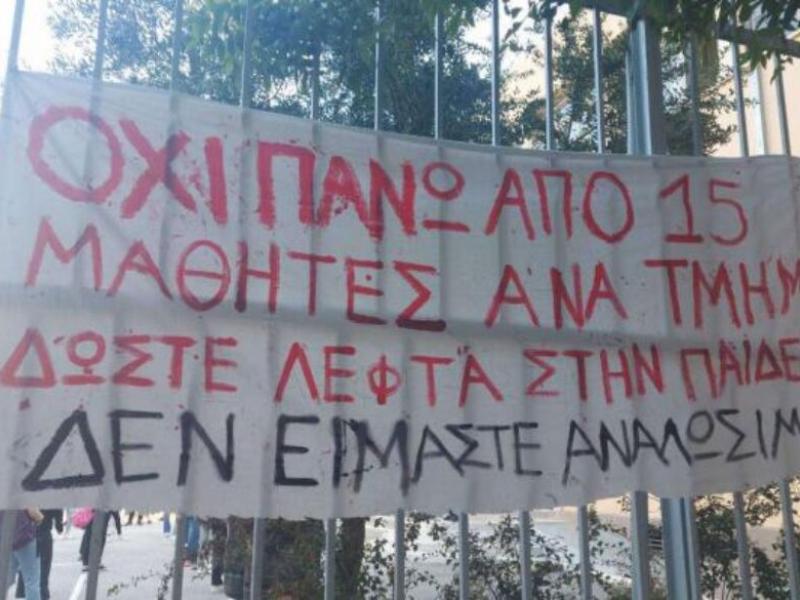 ΟΧΙ ΠΑΝΩ ΑΠΟ 15
ΜΑΘΗΤΕΣ ΑΝΑ ΤΜΗΜ
ΔΩΣΤΕ ΛΕΦΤΑ ΣΤΗΝ ΠΑΙΔΕ
ΔΕΝ ΕΙΜΑΣΤΕ ΑΝΑΛΩΣΙΜ